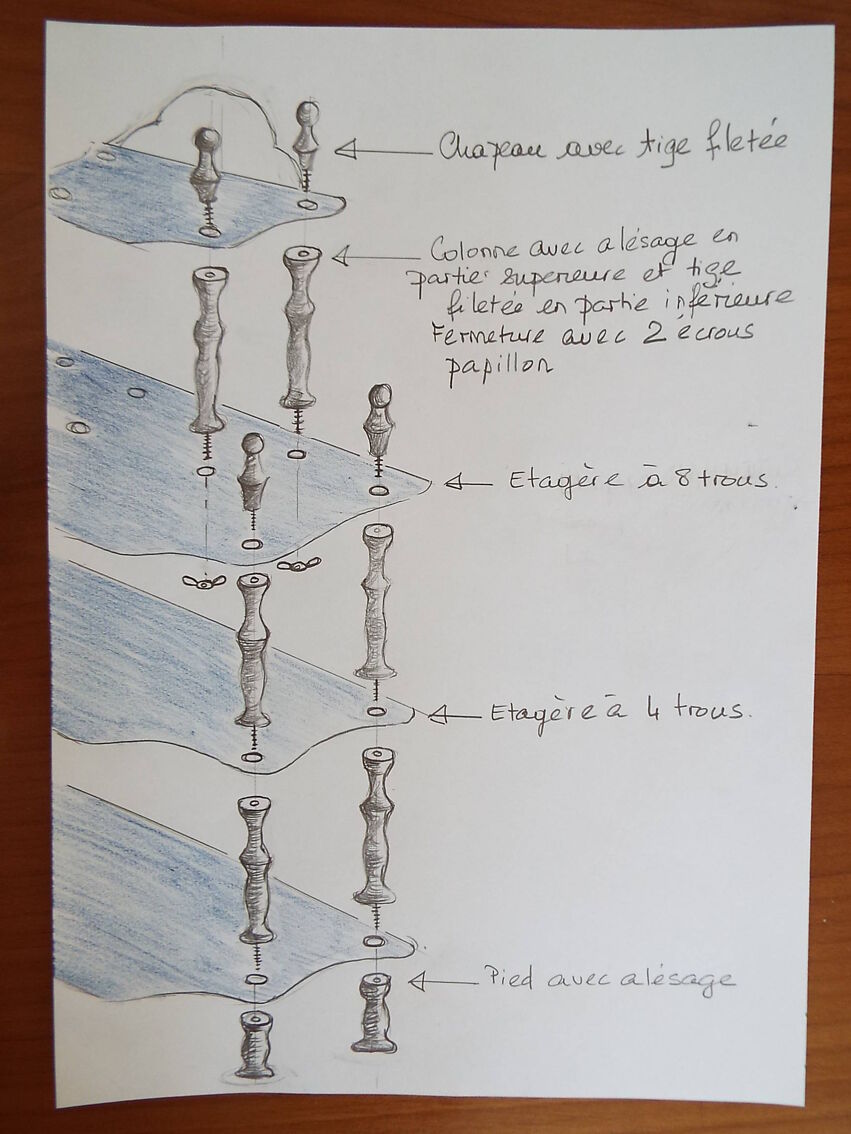 Chapeau avec tige filetée
Colonne avec alésage en
partie superieure et tige
filetée en partie inférieure
Fermeture avec 2 écrous
papillon
Etagère à 8 trous.
Etagère à 4 trous.
Pied avec alésage